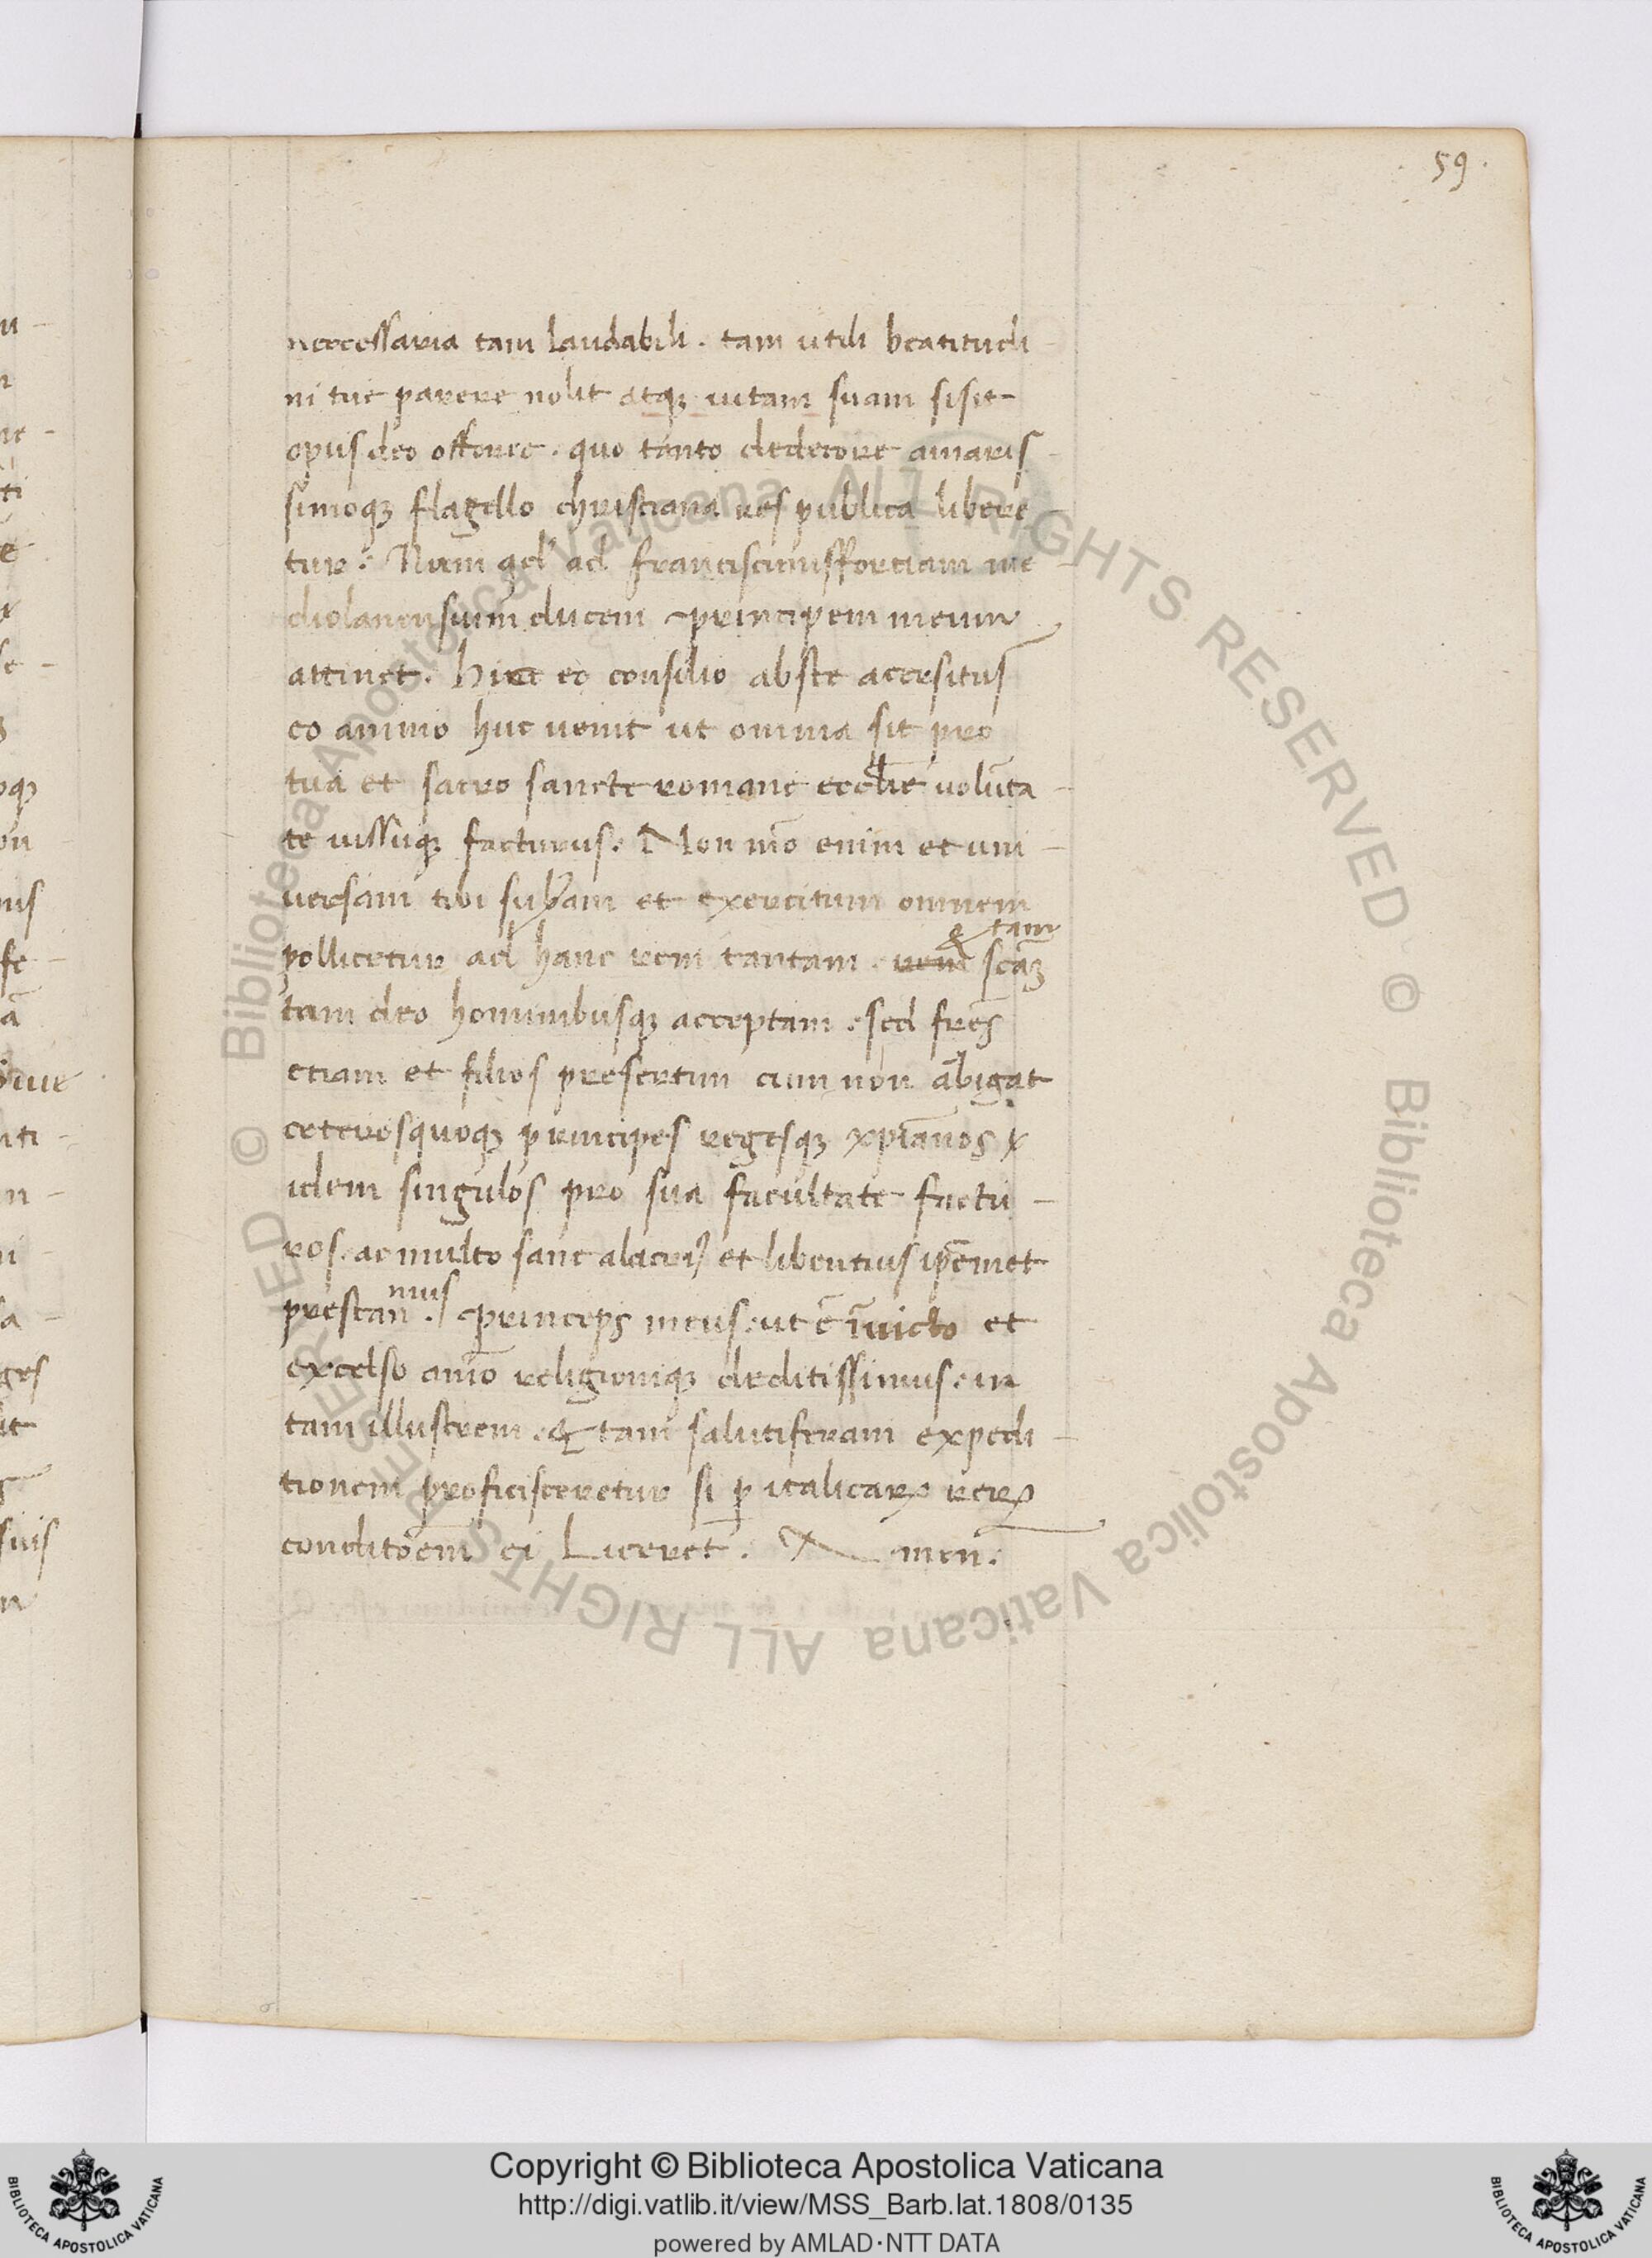 59
neccessaria tam laudabili. tam utili beatitudi-
ni tue parere nolit atqꝫ uitam suam si sit
opus deo offerre. quo tanto dedecore amaris
simoqꝫ flagello christiana res publica libere-
tur: Nam qd ad franciscum sfortiam me-
diolanensium ducem principem meum
attinet. Hic eo consilio abste accersitus
eo animo huc uenit ut omnia sit pro
tua et sacro sancte romane ecclie volūta-
te iussuqꝫ facturus. Non mō enim et uni-
uersam tibi sub̄am et exercitum omnem
pollicetur ad hanc rem tantam. & tam scāꝫ
tam deo hominibusqꝫ acceptam. sed fres̄
etiam et filios presertim cum non ābigat
ceteros quoqꝫ principes regesqꝫ xpīanos
idem singulos pro sua facultate factu-
ros. ac multo sane alacriꝰ et libentius ip̄emet
prestan.mus princeps meus. ut ē īuicto et
excelso anīo religioniqꝫ deditissimus. in
tam illustrem. & tam salutiferam expedi-
tionem proficisceretur si ꝑ italicaꝝ reꝝ
conditōem ei Liceret. Amen.
Copyright © Biblioteca Apostolica Vaticana
http://digi.vatlib.it/view/MSS_Barb.lat.1808/0135
powered by AMLAD·NTT DATA